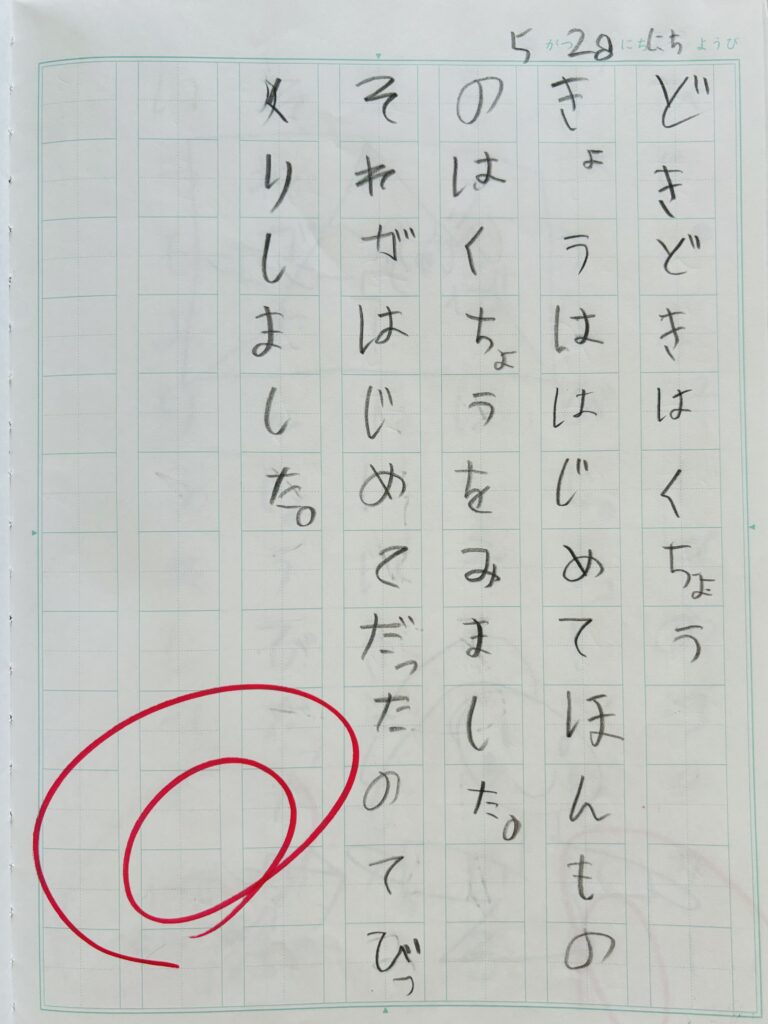 5がつ28にちにちようび
どきどきはくちょう
きょうははじめてほんもの
のはくちょうをみました。
それがはじめてだったのてびっ
くりしました。